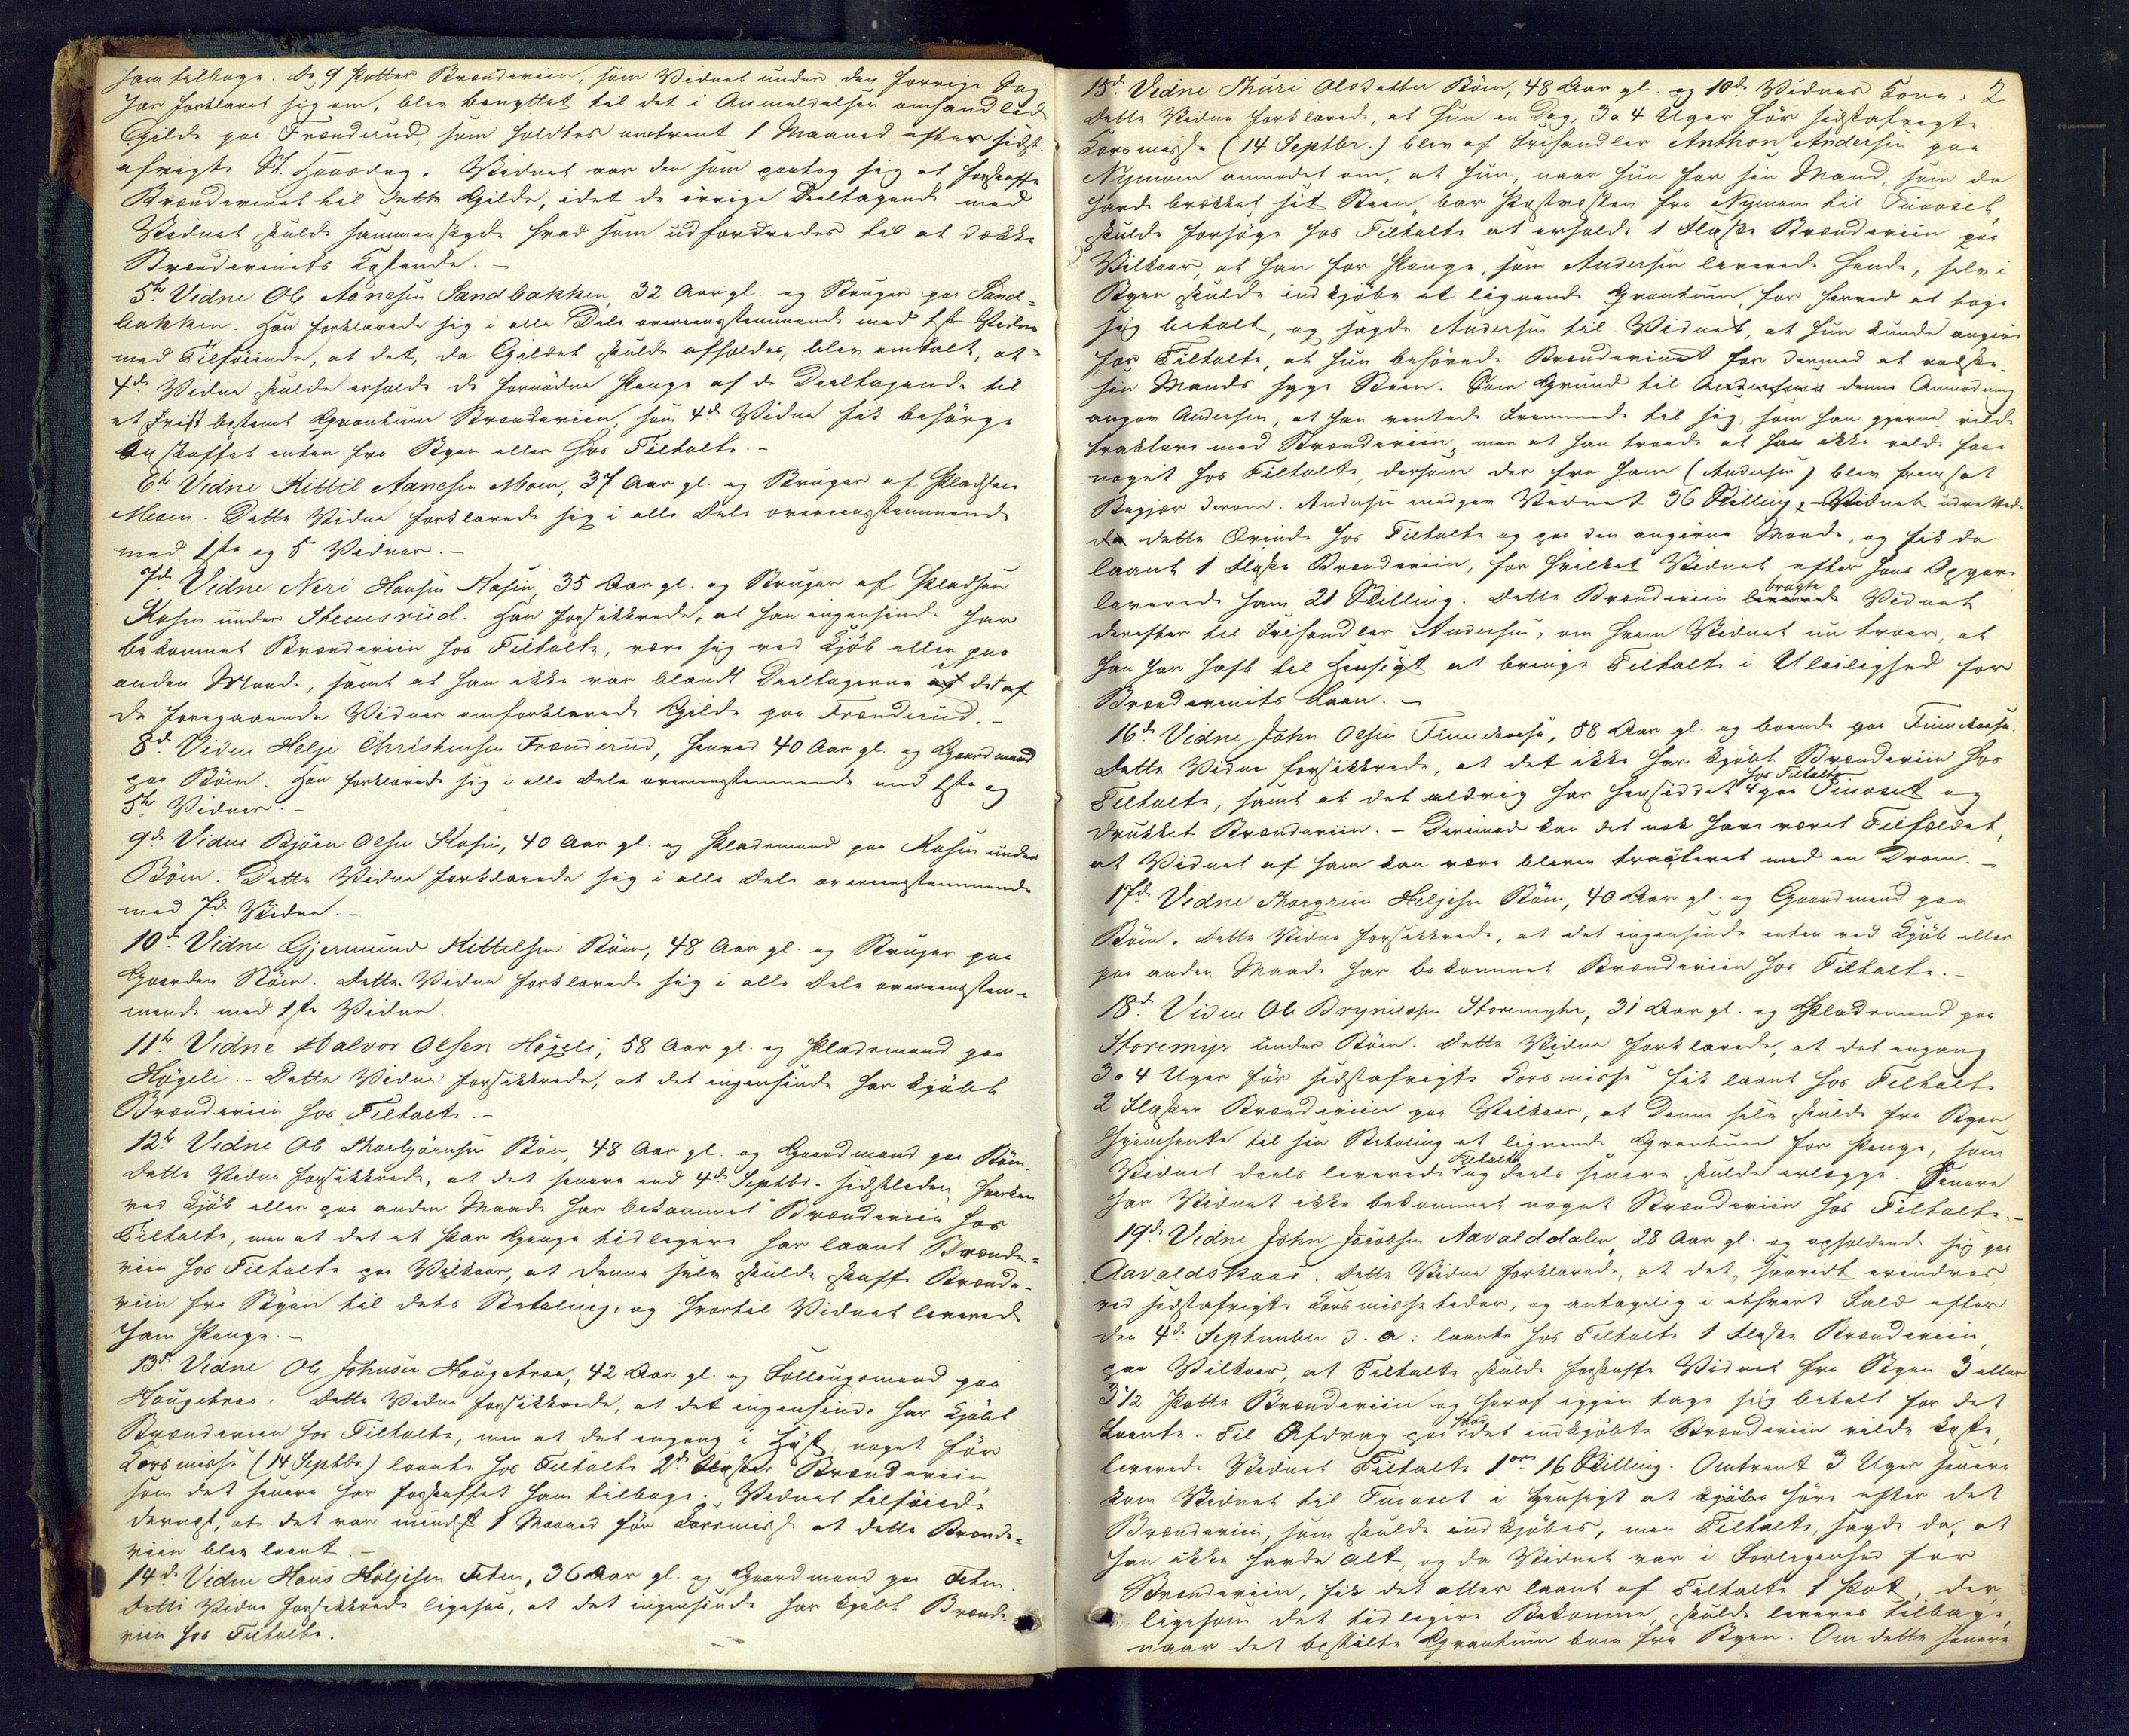 ham tilbage. De 9 Potter Brændeviin, som Vidnet under den forrige Sag
har forklaret sig om, blev benyttet til det i Anmeldelsen omhandlede
Gilde paa Frænderud, som holdtes omtrent 1 Maaned efter sidst
afvigte St. Hansdag. Vidnet var den som paatog sig at forskaffe
Brændevinet til dette Gilde, idet de øvrige Deeltagende med
Vidnet skulde sammenskyde hvad som udfordredes til at dække
Brændevinets Kostende. –
5te Vidne Ole Aanesen Sandbakken, 32 Aar gl. og Bruger paa Sand=
bakken. Han forklarede sig i alle Dele overeensstemmende med 1ste Vidne
med Tilføiende, at det, da Gildet skulde afholdes, blev omtalt, at
4de Vidne skulde erholde de fornødne Penge af de Deeltagende til
et vist bestemt Qvantum Brændeviin, som 4de Vidne fik besørge
anskaffet enten fra Byen eller hos Tiltalte. –
6te Vidne Kittil Aanesen Moen, 37 Aar gl. og Bruger af Pladsen
Moen. Dette Vidne forklarede sig i alle Dele overeensstemmende
med 1ste og 5 Vidner. –
7de Vidne Neri Hansen Kasin, 35 Aar gl. og Bruger af Pladsen
Kasin under Stensrud. Han forsikkrede, at han ingensinde har
bekommet Brændeviin hos Tiltalte, være sig ved Kjøb eller paa
anden Maade, samt at han ikke var blandt Deeltagerne i det af
de foregaaende Vidner omforklarede Gilde paa Frænderud. –
8de Vidne Helje Christensen Frænderud, henved 40 Aar gl. og Gaardmand
paa Bøen. Han forklarede sig i alle Dele overeensstemmende med 1ste og
5te Vidner. –
9de Vidne Bjørn Olsen Kasin, 40 Aar gl. og Pladsmand paa Kasin under
Bøen. Dette Vidne forklarede sig i alle Dele overeensstemmende
med 7de Vidne. –
10de Vidne Gjermund Kittelsen Bøen, 48 Aar gl. og Bruger paa
Gaarden Bøen. Dette Vidne forklarede sig i alle Dele overeensstem=
mende med 1ste Vidne.
11te Vidne Halvor Olsen Høgeli, 58 Aar gl. og Pladsmand paa
Høgeli. – Dette Vidne forsikkrede, at det ingensinde har kjøbt
Brændeviin hos Tiltalte. –
12te Vidne Ole Thorbjørnsen Bøen, 48 Aar gl. og Gaardmand paa Bøen.
Dette Vidne forsikkrede, at det senere end 4de Septbr. sidstleden hverken
ved Kjøb eller paa anden Maade har bekommet Brændeviin hos
Tiltalte, men at det et Par Gange tidligere har laant Brænde=
viin hos Tiltalte paa Vilkaar, at denne selv skulde skaffe Brænde=
viin fra Byen til dets Betaling, og hvortil Vidnet leverede
ham Penge. –
13de Vidne Ole Johnsen Haugebraa, 42 Aar gl. og Follaugsmand paa
Haugebraa. Dette Vidne forsikkrede, at det ingensinde har kjøbt
Brændeviin hos Tiltalte, men at det engang i Høst, noget før
Korsmisse (14 Septbr.) laante hos Tiltalte 2de Flasker Brændeviin
som det senere har forskaffet ham tilbage. Vidnet tilføiede
dernæst, at det var mindst 1 Maaned før Korsmisse at dette Brænde=
viin blev laant. –
14de Vidne Hans Høljesen Feten, 36 Aar gl. og Gaardmand paa Feten.
Dette Vidne forsikkrede ligesaa, at det ingensinde har kjøbt Brænde
viin hos Tiltalte.
15de Vidne Thuri Olsdatter Bøen, 48 Aar gl. og 10de Vidnes Kone. 2
Dette Vidne forklarede, at hun en Dag, 3 a 4 Uger før sidstafvigte
Korsmisse (14 Septbr.) blev af Frihandler Anthon Andersen paa
Nymoen anmodet om, at hun, naar hun for sin Mand, som da
havde brækket sit Been, bar Postvæsken fra Nymoen til Tinoset,
skulde forsøge hos Tiltalte at erholde 1 Flaske Brændeviin paa
Vilkaar, at han for Penge, som Andersen leverede hende, selv i
Byen skulde indkjøbe et lignende Qvantum, for herved at tage
sig betalt, og sagde Andersen til Vidnet, at hun kunde angive
hos Tiltalte, at hun behøvede Brændevinet for dermed at vadske
sin Mands syge Been. Som Grund til denne Anmodning
angav Andersen, at han ventede Fremmede til sig, som han gjerne vilde
traktere med Brændeviin, men at han troede at han ikke vilde faae
noget hos Tiltalte, dersom der fra ham (Andersen) blev fremsat
Begjær derom. Andersen medgav Vidnet 36 Skilling, Vidnet udrettede
dette Ærinde hos Tiltalte og paa den angivne Maade, og fik da
laant 1 Flaske Brændeviin, for hvilket Vidnet efter hans Opgave
leverede ham 21 Skilling. Dette Brændeviin bragte Vidnet
derefter til Frihandler Andersen, om hvem Vidnet nu troer, at
han har havt til Hensigt at bringe Tiltalte i Uleilighed for
Brændevinets Laan. –
16de Vidne John Olsen Finnekaasa, 58 Aar gl. og boende paa Finnekaasa.
Dette Vidne forsikkrede, at det ikke har kjøbt Brændeviin hos
Tiltalte, samt at det aldrig har hensiddet hos Tiltalte paa Tinoset og
drukket Brændeviin. – Derimod kan det nok have været Tilfældet,
at Vidnet af ham kan være bleven tracteret med en Dram. –
17de Vidne Thorgrim Heljesen Bøen, 40 Aar gl. og Gaardmand paa
Bøen. Dette Vidne forsikkrede, at det ingensinde enten ved Kjøb eller
paa anden Maade har bekommet Brændeviin hos Tiltalte. –
18de Vidne Ole Brynildsen Storemyhr, 31 Aar gl. og Pladsmand paa
Storemyr under Bøen. Dette Vidne forklarede, at det engang
3 a 4 Uger før sidstafvigte Korsmisse fik laant hos Tiltalte
2 Flasker Brændeviin paa Vilkaar, at denne selv skulde fra Byen
hjemhente til sin Betaling et lignende Qvantum for Penge, som
Vidnet deels leverede Tiltalte og deels senere skulde erlægge. Senere
har Vidnet ikke bekommet noget Brændeviin hos Tiltalte. –
19de Vidne John Jacobsen Aavalddalen, 28 Aar gl. og opholdende sig paa
Aavaldskaas. Dette Vidne forklarede, at det, saavidt erindres,
ved sidstafvigte Korsmissetider, og antagelig i ethvert Fald efter
den 4de September d. A. laante hos Tiltalte 1 Flaske Brændeviin
paa Vilkaar, at Tiltalte skulde forskaffe Vidnet fra Byen 3 eller
3 1/2 Potte Brændeviin og heraf igjen tage sig betalt for det
Laante. Til Afdrag paa hvad det indkjøbte Brændeviin vilde koste,
leverede Vidnet Tiltalte 1 ort 16 Skilling. Omtrent 3 Uger senere
kom Vidnet til Tinoset i Hensigt at høre efter det
Brændeviin, som skulde indkjøbes, men Tiltalte sagde da, at
han ikke havde alt, og da Vidnet var i Forlegenhed for
Brændeviin, fik det atter laant af Tiltalte 1 Pot, der,
ligesom det tidligere Bekomne, skulde leveres tilbage,
naar det bestilte Qvantum kom fra Byen. Om dette senere